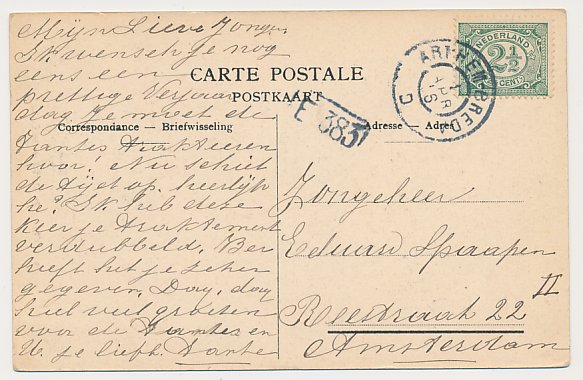 Mijn Lieve Jongen
Ik wensch je nog
eens een
prettige Verjaar
dag Je moet de
tantes trakteeren
hoor! Nu schiet
de tijd op heerlijk
he? Ik heb deze
keer je traktement
verdubbeld. Ber
heeft het je zeker
gegeven. Dag, dag
heel veel groeten
voor de Tantes en
U. je liefh. Tante
CARTE POSTALE
POSTKAART
Correspondance — Briefwisseling
Adresse — Adres
E 383
NEDERLAND
2½
CENT
ARNHEM-BREDA
APR
D
Jongeheer
Eduard Spaapen
Reestraat 22 II
Amsterdam